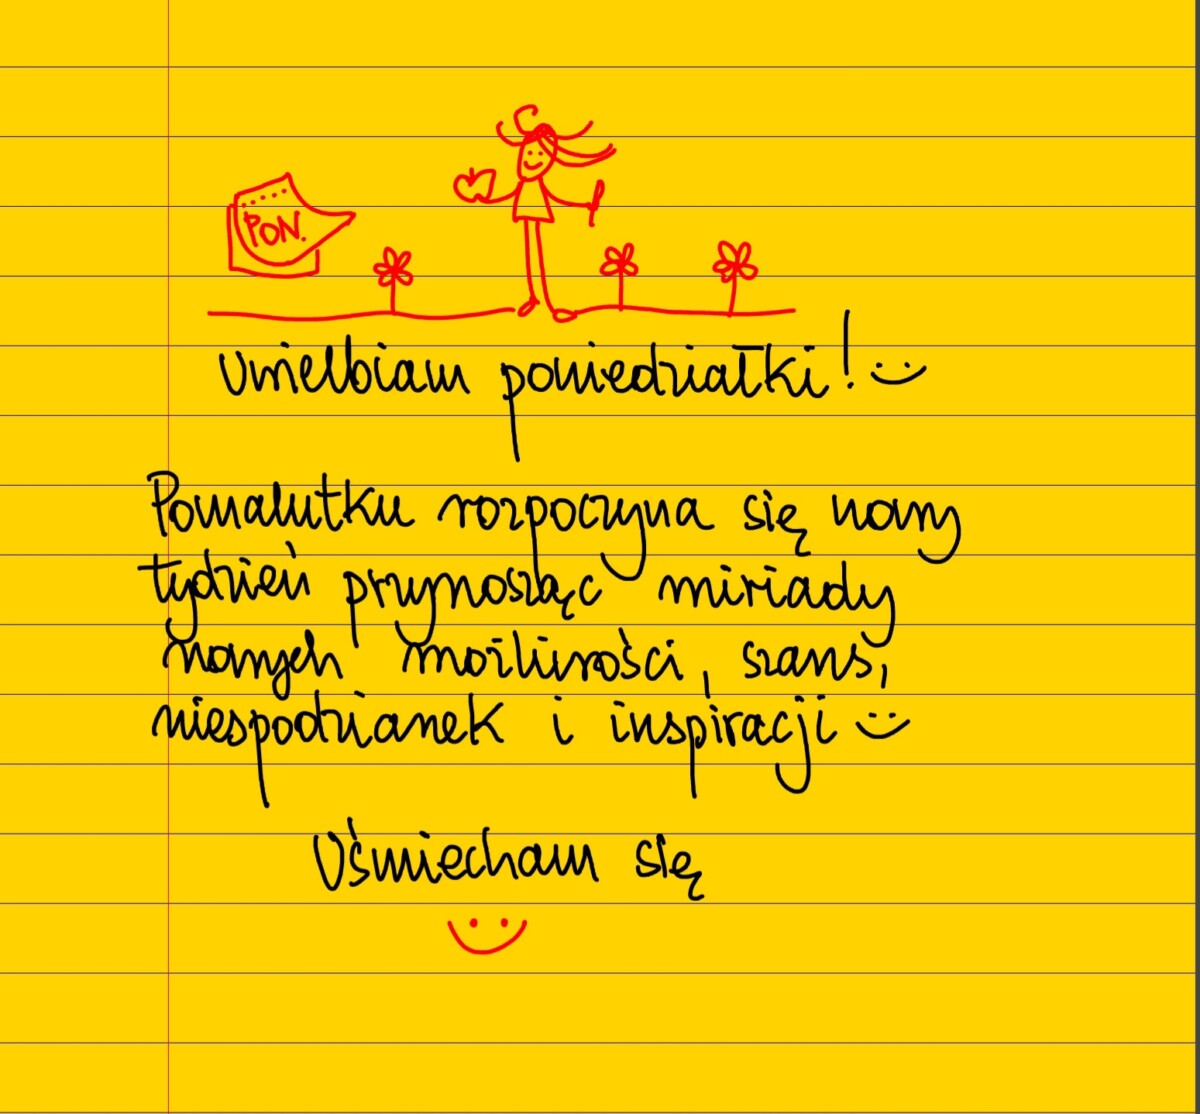 PON.
Uwielbiam poniedziałki! :)
Pomalutku rozpoczyna się nowy
tydzień przynosząc miriady
nowych możliwości, szans,
niespodzianek i inspiracji :)
Uśmiecham się
:)